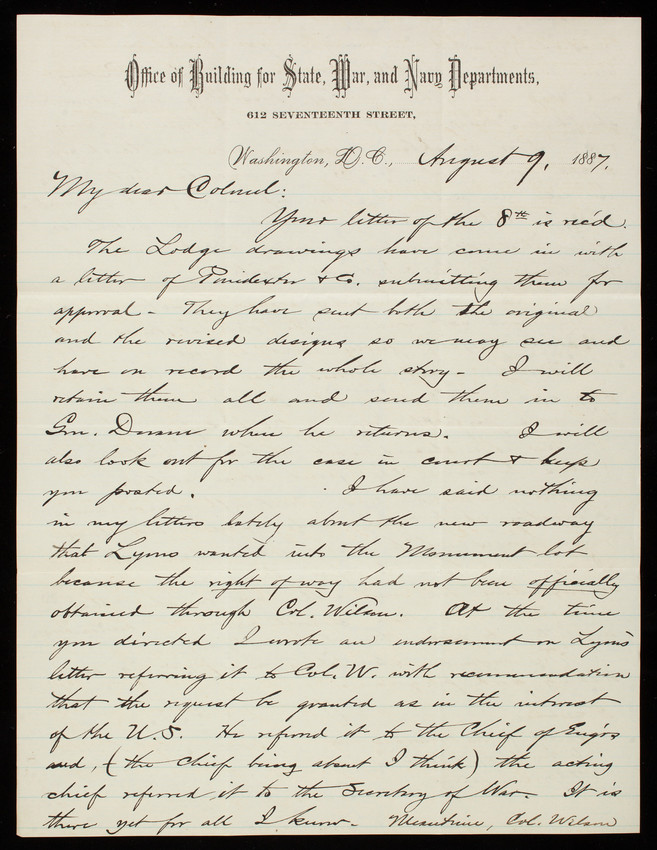 Office of Building for State, War, and Navy Departments,
612 SEVENTEENTH STREET,
Washington, D.C., August 9, 1887.
My dear Colonel:
Your letter of the 8th is rec'd.
The Lodge drawings have come in with
a letter of Poindexter & Co. submitting them for
approval - They have sent both the original
and the revised designs so we may see and
have on record the whole story - I will
retain them all and send them in to
Gen. Duane when he returns. I will
also look out for the case in court & keep
you posted. I have said nothing
in my letters lately about the new roadway
that Lyons wanted into the Monument lot
because the right of way had not been officially
obtained through Col. Wilson. At the time
you directed I wrote an endorsement on Lyons
letter referring it to Col. W. with recommendation
that the request be granted as in the interest
of the U.S. He referred it to the Chief of Eng'rs
and, (the chief being absent I think) the acting
chief referred it to the Secretary of War. It is
there yet for all I know - Meantime, Col. Wilson